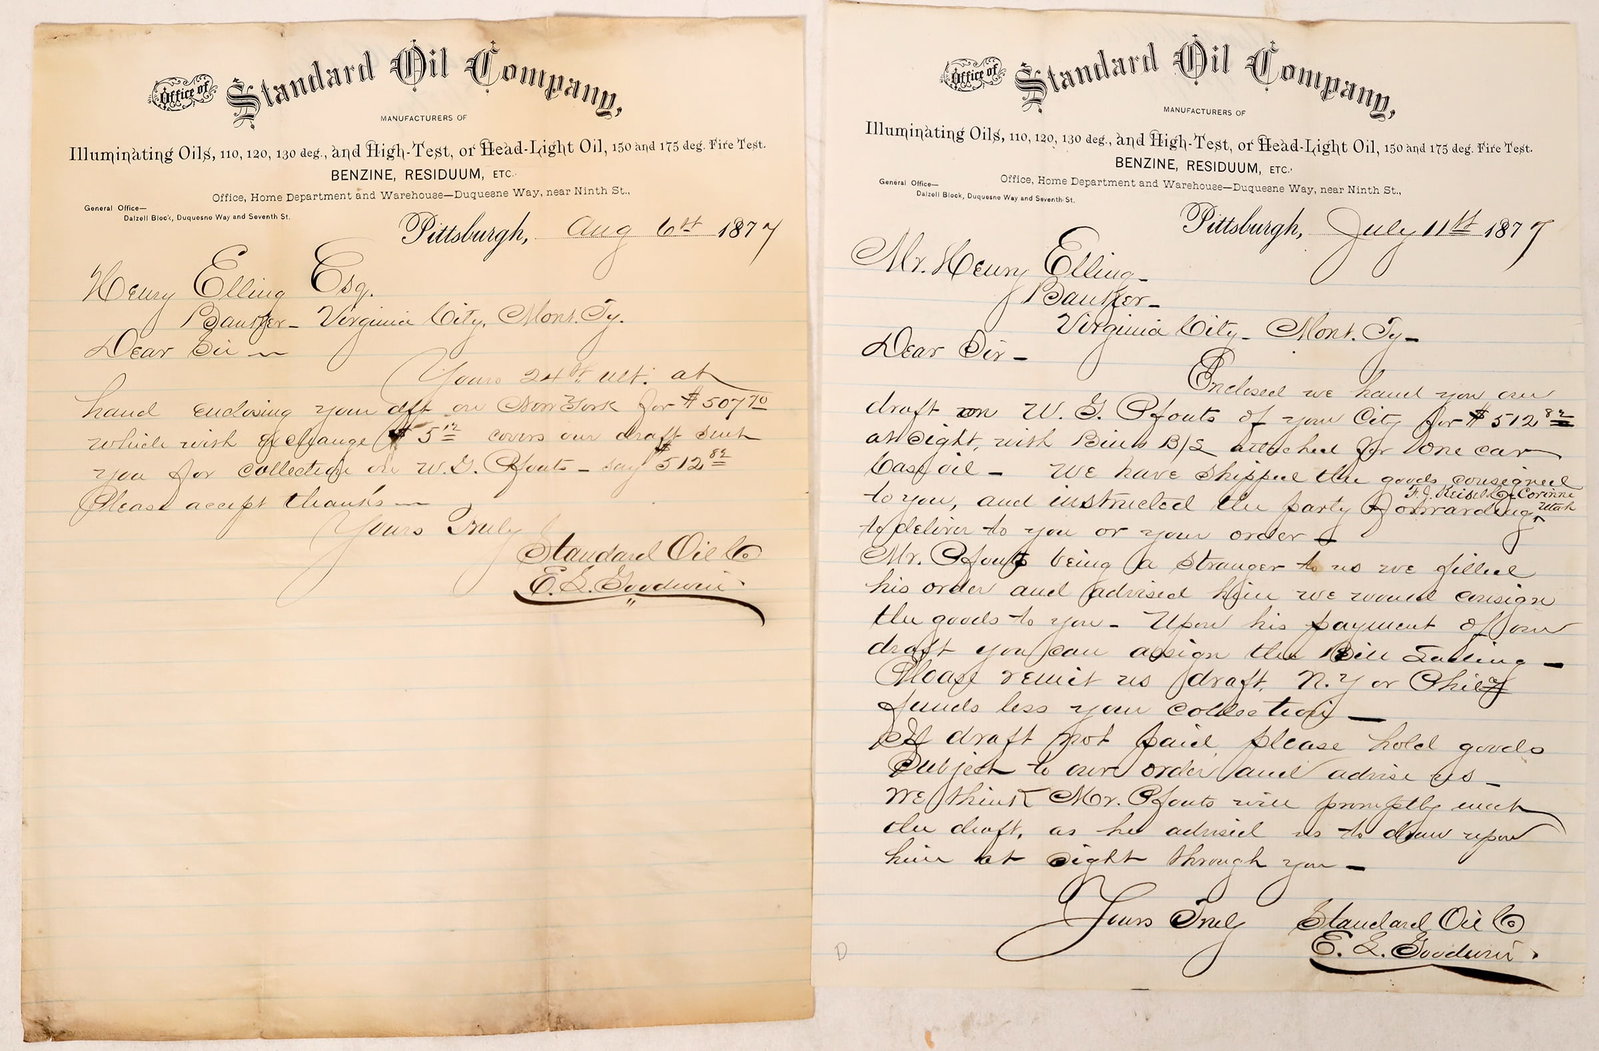 Office of Standard Oil Company,
MANUFACTURERS OF
Illuminating Oils, 110, 120, 130 deg., and High-Test, or Head-Light Oil, 150 and 175 deg. Fire Test.
BENZINE, RESIDUUM, ETC.
Office, Home Department and Warehouse—Duquesne Way, near Ninth St.,
General Office—
Dalzell Block, Duquesne Way and Seventh St.
Pittsburgh, Aug 6th 1877
Henry Elling Esq.
Banker - Virginia City, Mont. Ty.
Dear Sir
Yours 24th ult. at
hand enclosing your dft on New York for $507.70
which with exchange $5.12 covers our draft sent
you for collection on W.G. Pfouts - say $512.82
Please accept thanks
Yours Truly
Standard Oil Co
E. L. Goodwin
Office of Standard Oil Company,
MANUFACTURERS OF
Illuminating Oils, 110, 120, 130 deg., and High-Test, or Head-Light Oil, 150 and 175 deg. Fire Test.
BENZINE, RESIDUUM, ETC.
Office, Home Department and Warehouse—Duquesne Way, near Ninth St.,
General Office—
Dalzell Block, Duquesne Way and Seventh St.
Pittsburgh, July 11th 1877
Mr. Henry Elling -
Banker -
Virginia City - Mont. Ty -
Dear Sir -
Enclosed we hand you our
draft on W. G. Pfouts of your City for $512.82
at sight, with B/L attached for one car
Case oil - We have shipped the goods consigned
to you, and instructed the party forwarding F. J. Kiesel & Co Corinne Utah
to deliver to you or your order -
Mr. Pfouts being a stranger to us we filled
his order and advised him we would consign
the goods to you - Upon his payment of our
draft you can assign the Bill Lading -
Please remit us draft, N.Y or Chicg
funds less your collection -
If draft not paid please hold goods
Subject to our order and advise us -
We think Mr. Pfouts will promptly meet
the draft, as he advised us to draw upon
him at sight through you -
Yours Truly Standard Oil Co
E. L. Goodwin
D